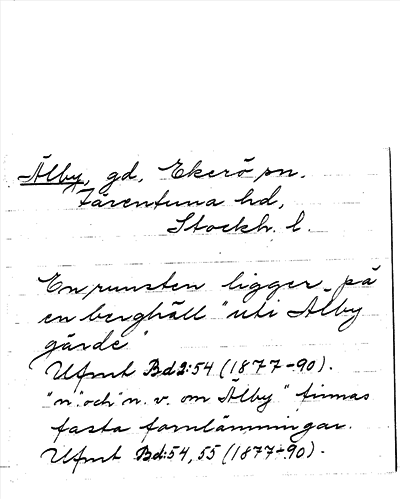 Älby, gd, Ekerö sn.
Färentuna hd,
Stockh. l.
En runsten ligger på
en berghäll "uti Älby
gärde"
Ufmt Bd2:54 (1877-90).
"n." och "n. v. om Älby" finnas
fasta fornlämningar.
Ufmt Bd:54, 55 (1877-90).